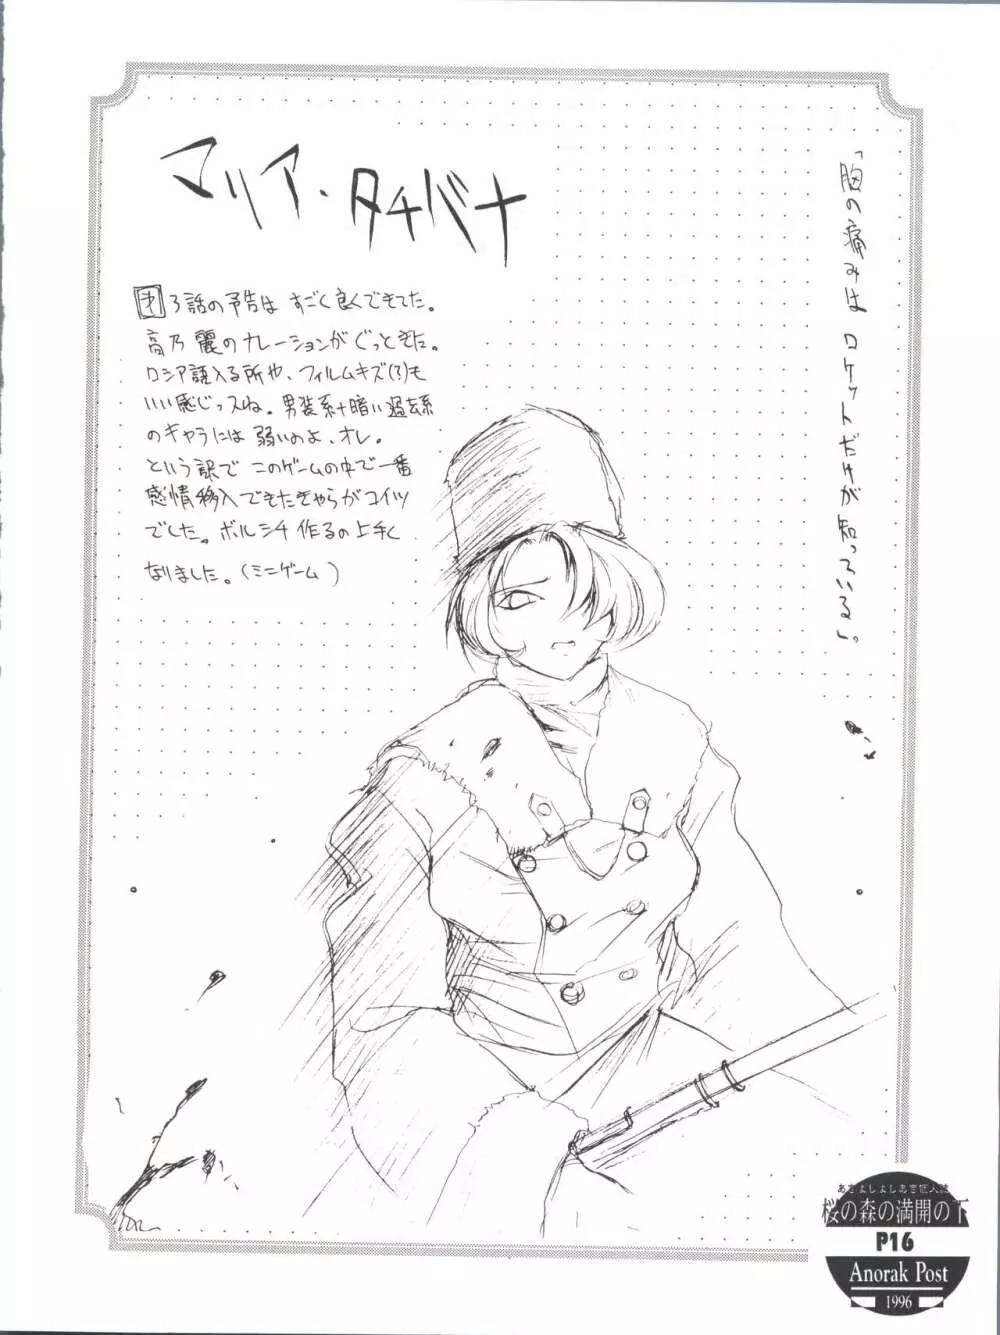 マリア・タチバナ
「胸の痛みは ロケットだけが知っている」。
才3話の予告は すごく良くできてた。
高乃 麗のナレーションがぐっときた。
ロシア語入る所や、フィルムキズ(?)も
いい感じっスね。男装系+暗い過去系
のキャラには 弱いのよ、オレ。
という訳で このゲームの中で一番
感情移入できたきゃらがコイツ
でした。ボルシチ 作るの上手く
なりました。(ミニゲーム)
桜の森の満開の下
P16
Anorak Post
1996